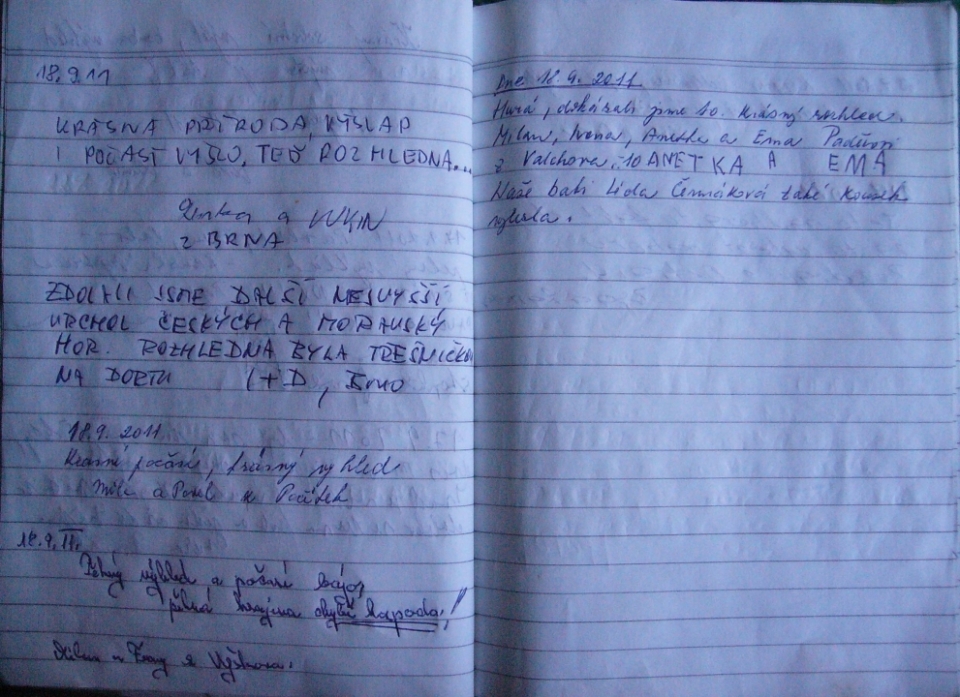 18.9.11
KRÁSNÁ PŘÍRODA, VÝŠLAP
I POČASÍ VYŠLO, TEĎ ROZHLEDNA...
a
Z BRNA
ZDOLALI JSME DALŠÍ NEJVYŠŠÍ
VRCHOL ČESKÝCH A MORAVSKÝ
HOR. ROZHLEDNA BYLA TŘEŠNIČKOU
NA DORTU I+D, Brno
18.9. 2011
Krásné počasí, krásný výhled
a Pavel z
18.9.11.
Pěkný výhled a počasí
krajina chybí kapoda!!
Milan a z Vyškova.
Dne 18.9.2011
Hurá, dokázali jsme to. Krásný rozhled.
Milan, Ivona, Anetka a Ema
z Valchova. 10 ANETKA A EMA
Naše babi Lída Čermáková také kousek
vylezla.